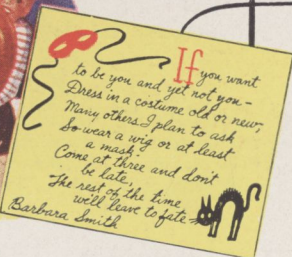 If you want
to be you and yet not you –
Dress in a costume old or new;
Many others I plan to ask
So wear a wig or at least
a mask.
Come at three and don't
be late,
The rest of the time
we'll leave to fate –
Barbara Smith